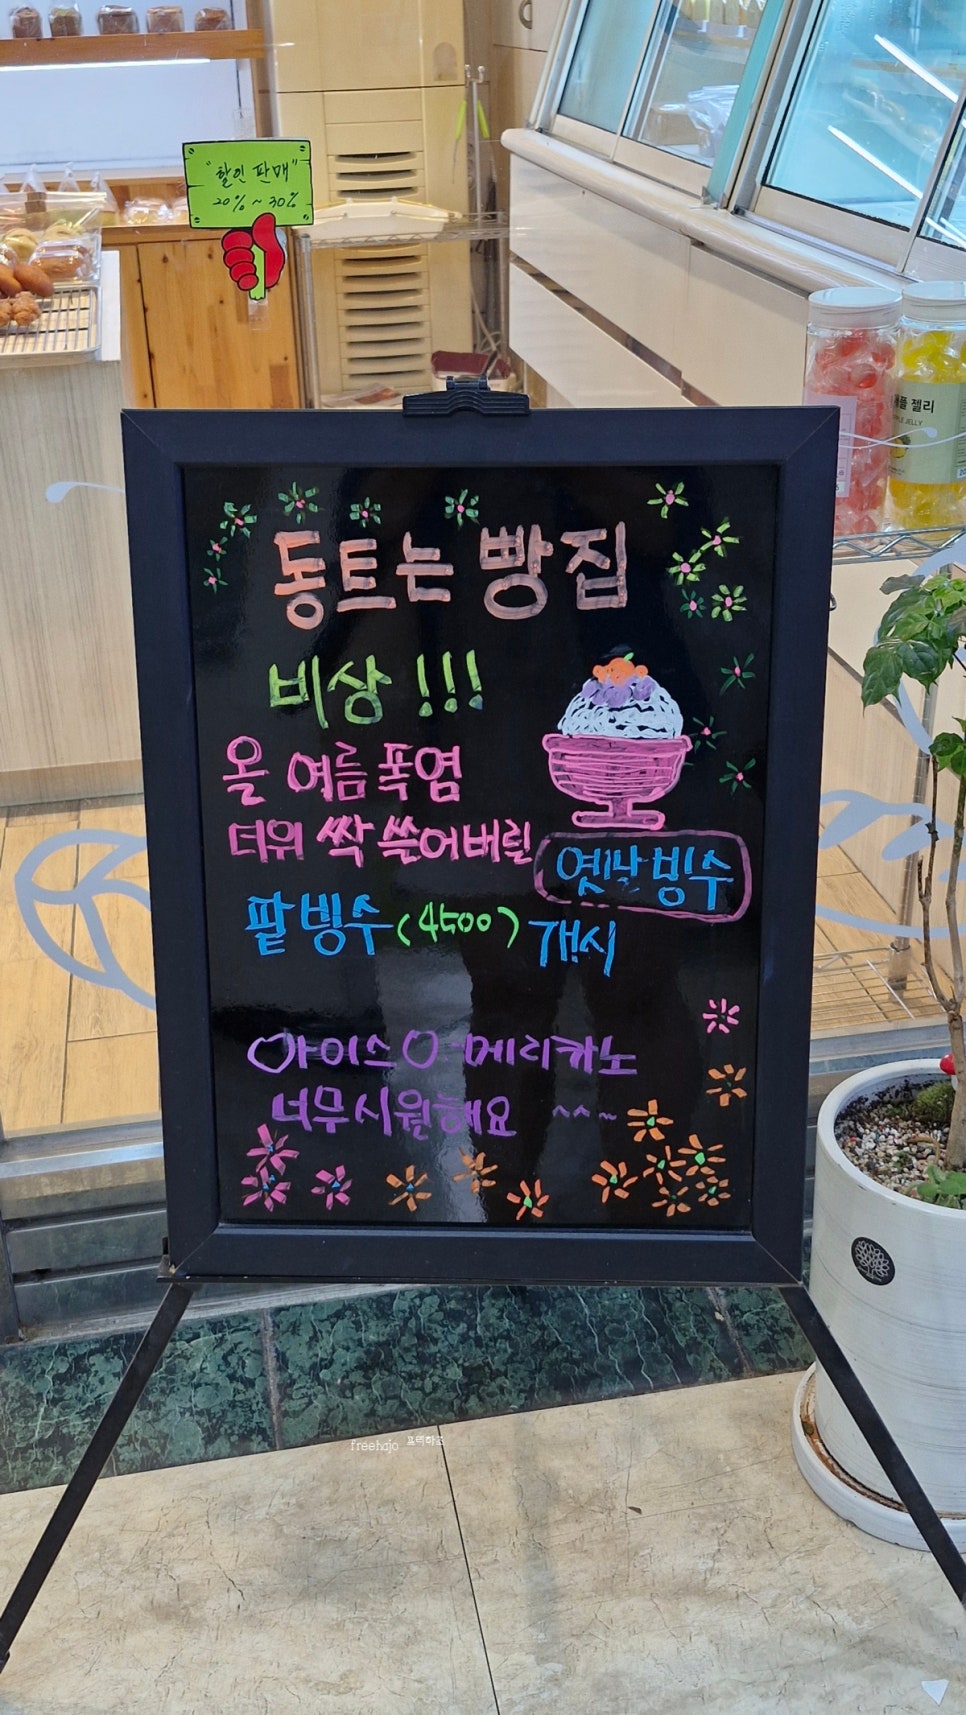 "할인 판매"
20% ~ 30%
플 젤리
PLE JELLY
동트는 빵집
비상 !!!
올 여름 폭염
더위 싹 쓸어버릴
옛날 빙수
팥빙수 (4500) 개시
아이스 아메리카노
너무 시원해요 ^^~
freehajo 프리하조